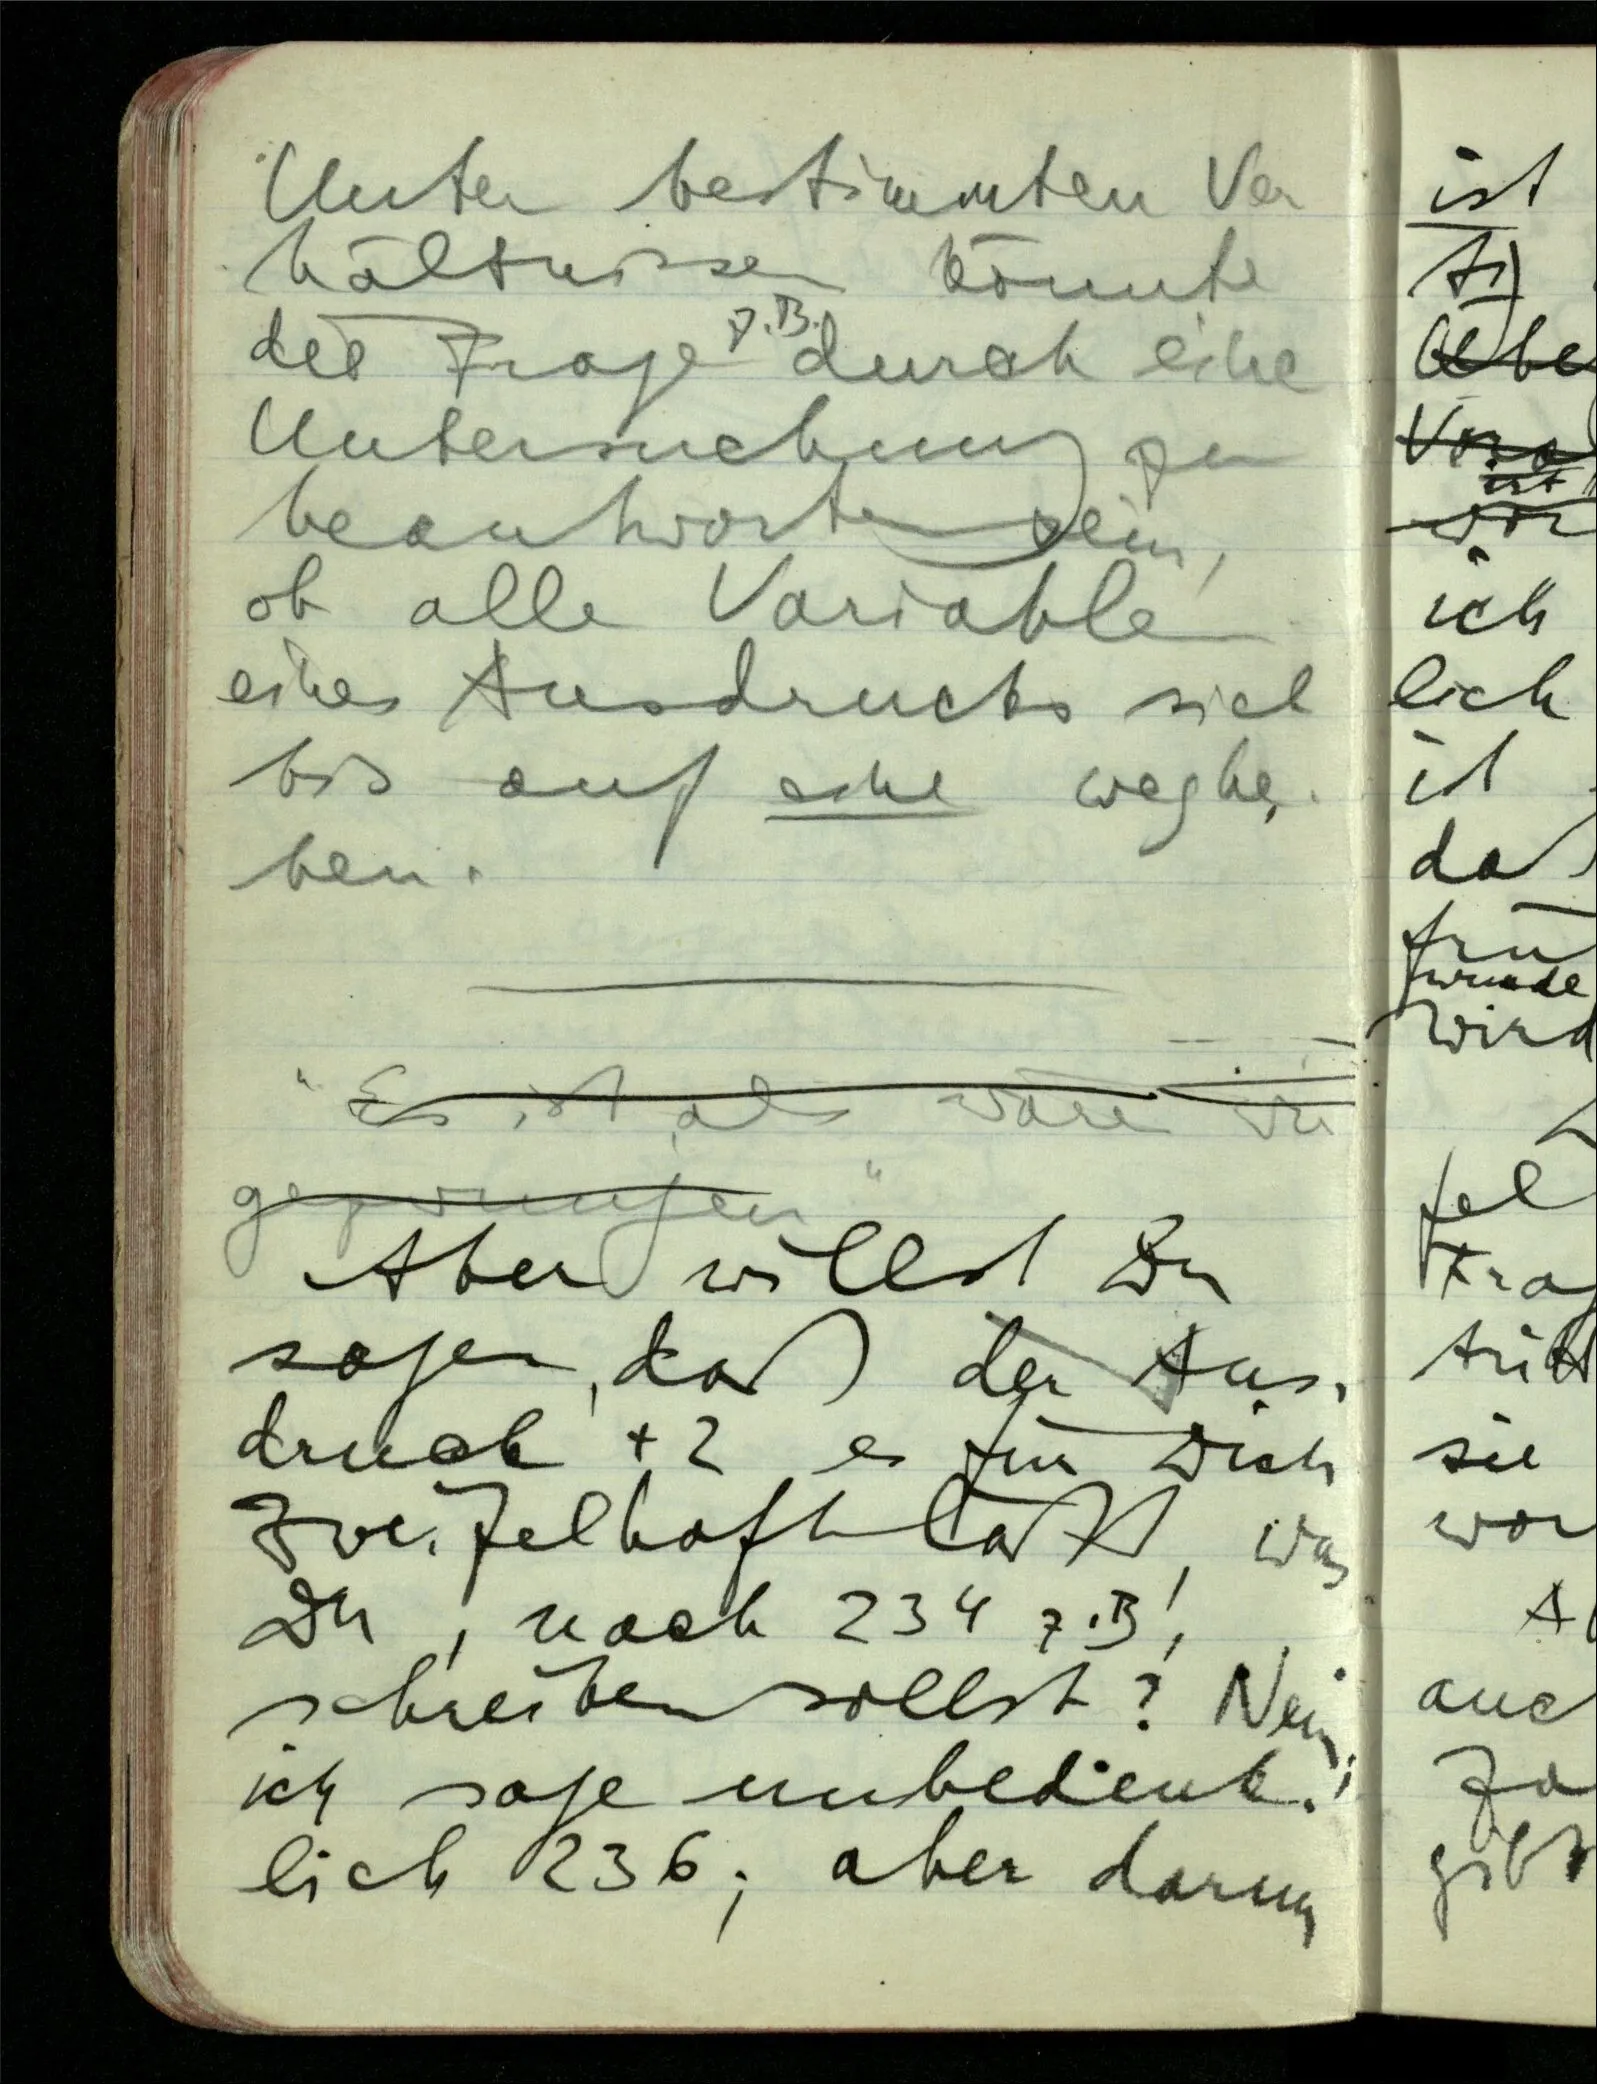 Unter bestimmten Ver
hältnissen könnte
die Frage z.B. durch eine
Untersuchung zu
beantworten sein,
ob alle Variablen
eines Ausdrucks sich
bis auf eineweghe-
ben.
"Es ist, als wäre wir
gezwungen"
Aber willst Du
sagen, daß der Aus-
druck +2 es für Dich
zweifelhaft läßt, was
Du, nach 234 z.B.,
schreiben sollst? Nein,
ich sage unbedenk-
lich 236; aber darum
ist
Abe
ist
wor
ich
lich
ist
daß
frü
wurde
wird
fel
Frag
tritt
sie
wor
A
auc
Za
gibt